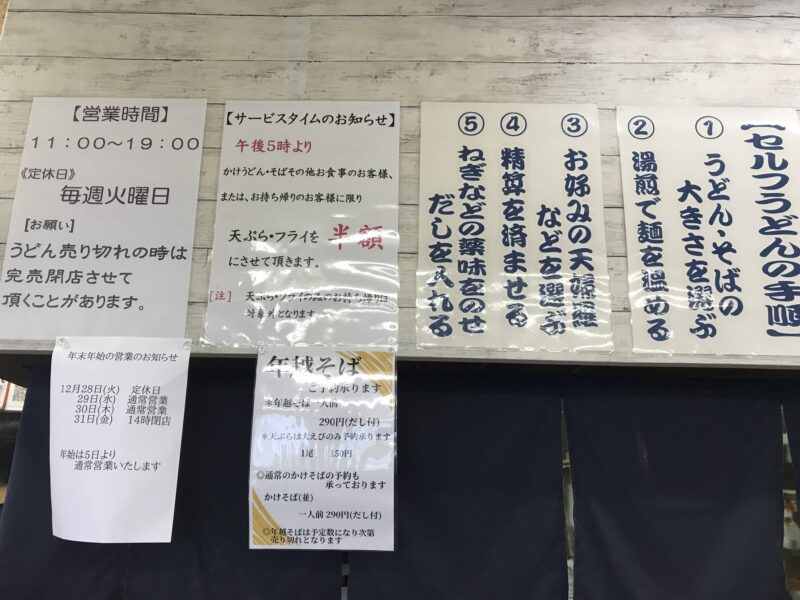 【営業時間】
11:00〜19:00
《定休日》
毎週火曜日
[お願い]
うどん売り切れの時は
完売閉店させて
頂くことがあります。
【サービスタイムのお知らせ】
午後5時より
かけうどん・そばその他お食事のお客様、
または、お持ち帰りのお客様に限り
天ぷら・フライを 半額
にさせて頂きます。
[注] 天ぷら・フライのみのお持ち帰りは
対象外となります
【セルフうどんの手順】
① うどん・そばの
大きさを選ぶ
② 湯煎で麺を温める
③ お好みの天婦羅
などを選ぶ
④ 精算を済ませる
⑤ ねぎなどの薬味をのせ
だしを入れる
年末年始の営業のお知らせ
12月28日(火) 定休日
29日(水) 通常営業
30日(木) 通常営業
31日(金) 14時閉店
年始は5日より
通常営業いたします
年越そば
ご予約承ります
※年越そば一人前
290円(だし付)
※天ぷらは大えびのみ予約承ります
1尾 150円
◎通常のかけそばの予約も
承っております
かけそば(並)
一人前 290円(だし付)
◎年越そばは予定数になり次第
売り切れとなります